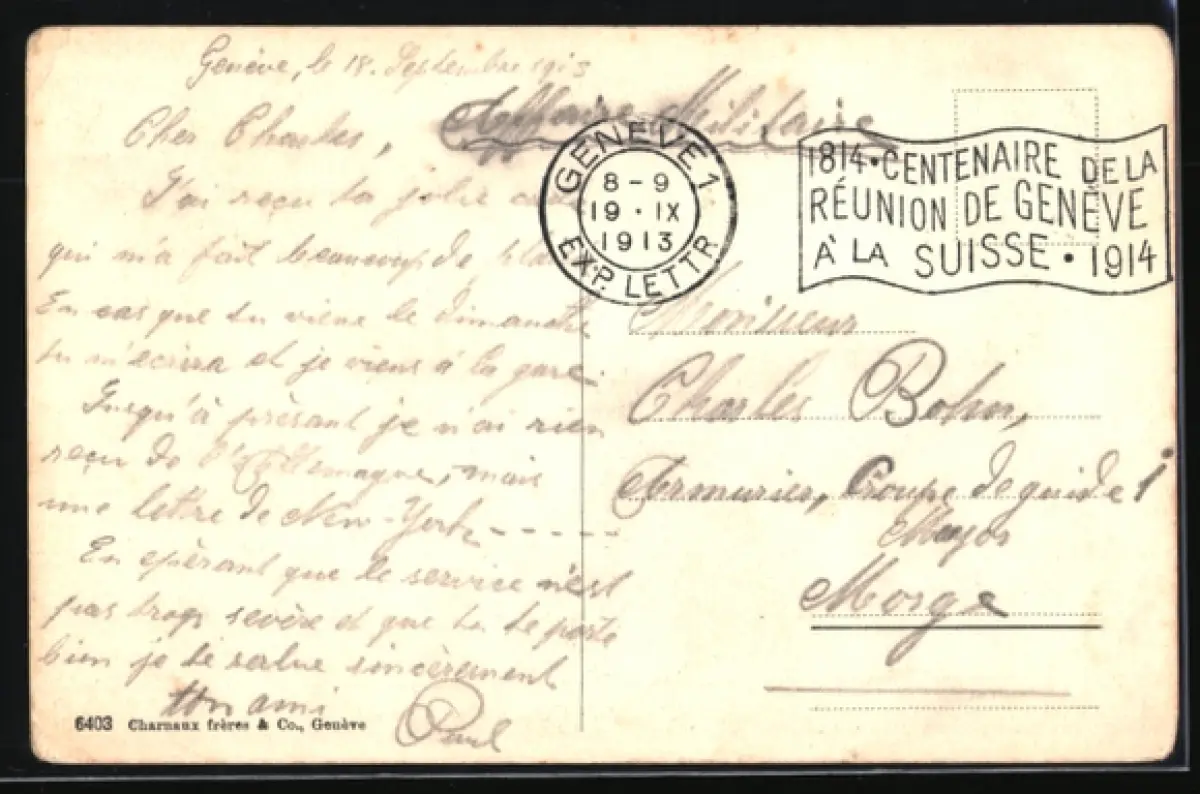 Genève, le 18. Septembre 1913
Affaire Militaire
Cher Charles,
J'ai reçu ta jolie
qui m'a fait beaucoup de
En cas que tu viens le dimanche
tu m'ecrira et je viens à la gare.
Jusqu'à présant je n'ai rien
reçu de l'Allemagne, mais
une lettre de New-York - - - - -
En epérant que le service n'est
pas trop sevère et que tu te porte
bien je te salue sincèrement
ton ami
Paul
6403 Charnaux frères & Co., Genève
GENÈVE 1
8-9
19 · IX
1913
EXP. LETTR
1814 · CENTENAIRE DE LA
RÉUNION DE GENÈVE
À LA SUISSE · 1914
Monsieur
Charles
Armurier, Groupe de guide 1
Morge